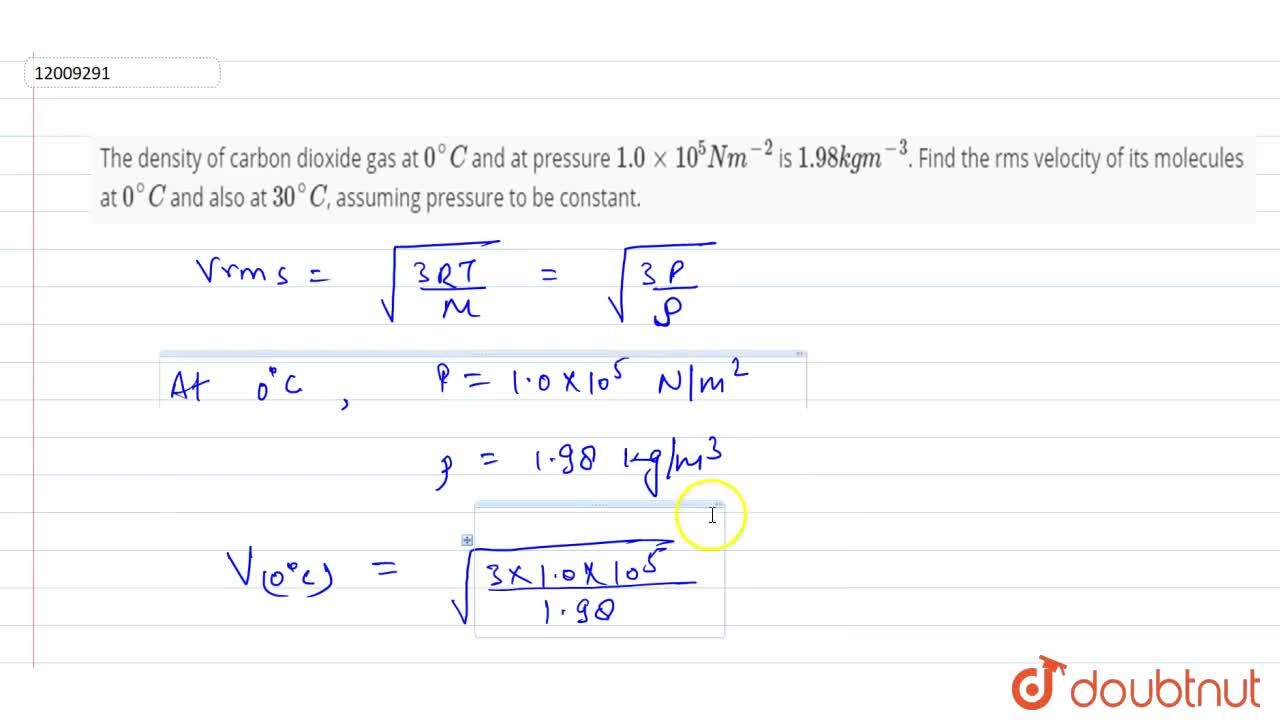 12009291
The density of carbon dioxide gas at 0°C and at pressure 1.0 × 10⁵Nm⁻² is 1.98kgm⁻³. Find the rms velocity of its molecules
at 0°C and also at 30°C, assuming pressure to be constant.
Vrms = √(3RT/M) = √(3P/ρ)
At 0°C, P = 1.0×10⁵ N/m²
ρ = 1.98 kg/m³
V(0°C) = √(3×1.0×10⁵/1.98)
doubtnut